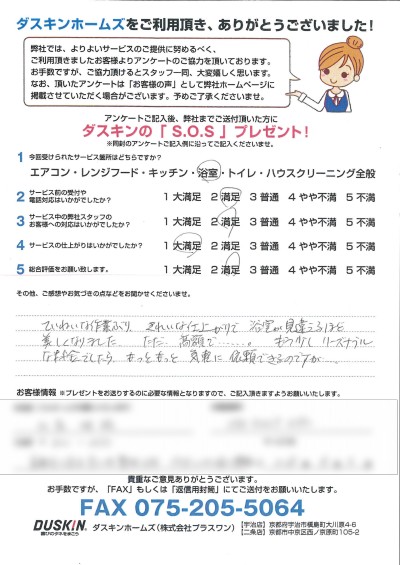 ダスキンホームズをご利用頂き、ありがとうございました！
弊社では、よりよいサービスのご提供に努めるべく、
ご利用頂きましたお客様よりアンケートのご協力を頂いております。
お手数ですが、ご協力頂けるとスタッフ一同、大変嬉しく思います。
なお、頂いたアンケートは「お客様の声」として弊社ホームページに
掲載させていただく場合がございます。予めご了承くださいませ。
アンケートご記入後、弊社までご送付頂いた方に
ダスキンの「S.O.S」プレゼント！
※同封のアンケートご記入例に沿ってご記入くださいませ。
1 今回受けられたサービス箇所はどちらですか？
エアコン・レンジフード・キッチン・浴室・トイレ・ハウスクリーニング全般
2 サービス前の受付や
電話対応はいかがでしたか？ 1 大満足 2 満足 3 普通 4 やや不満 5 不満
3 サービス中の弊社スタッフの
お客様への対応はいかがでしたか？ 1 大満足 2 満足 3 普通 4 やや不満 5 不満
4 サービスの仕上がりはいかがでしたか？ 1 大満足 2 満足 3 普通 4 やや不満 5 不満
5 総合評価をお願い致します。 1 大満足 2 満足 3 普通 4 やや不満 5 不満
その他、ご感想やお気づきの点などをお聞かせくださいませ。
ていねいな作業ぶり、きれいな仕上がりで 浴室が見違えるほど
美しくなりました。ただ、高額で……。もう少しリーズナブル
な料金でしたら、もっともっと 気軽に 依頼できるのですが…
お客様情報 ※プレゼントをお送りするのに必要な情報となりますので、ご記入頂きますようお願いいたします。
貴重なご意見ありがとうございます。
お手数ですが、「FAX」もしくは「返信用封筒」にてご送付をお願いいたします。
FAX 075-205-5064
DUSKIN 喜びのタネをまこう ダスキンホームズ（株式会社プラスワン） 【宇治店】京都府宇治市槇島町大川原4-6
【二条店】京都市中京区西ノ京原町105-2